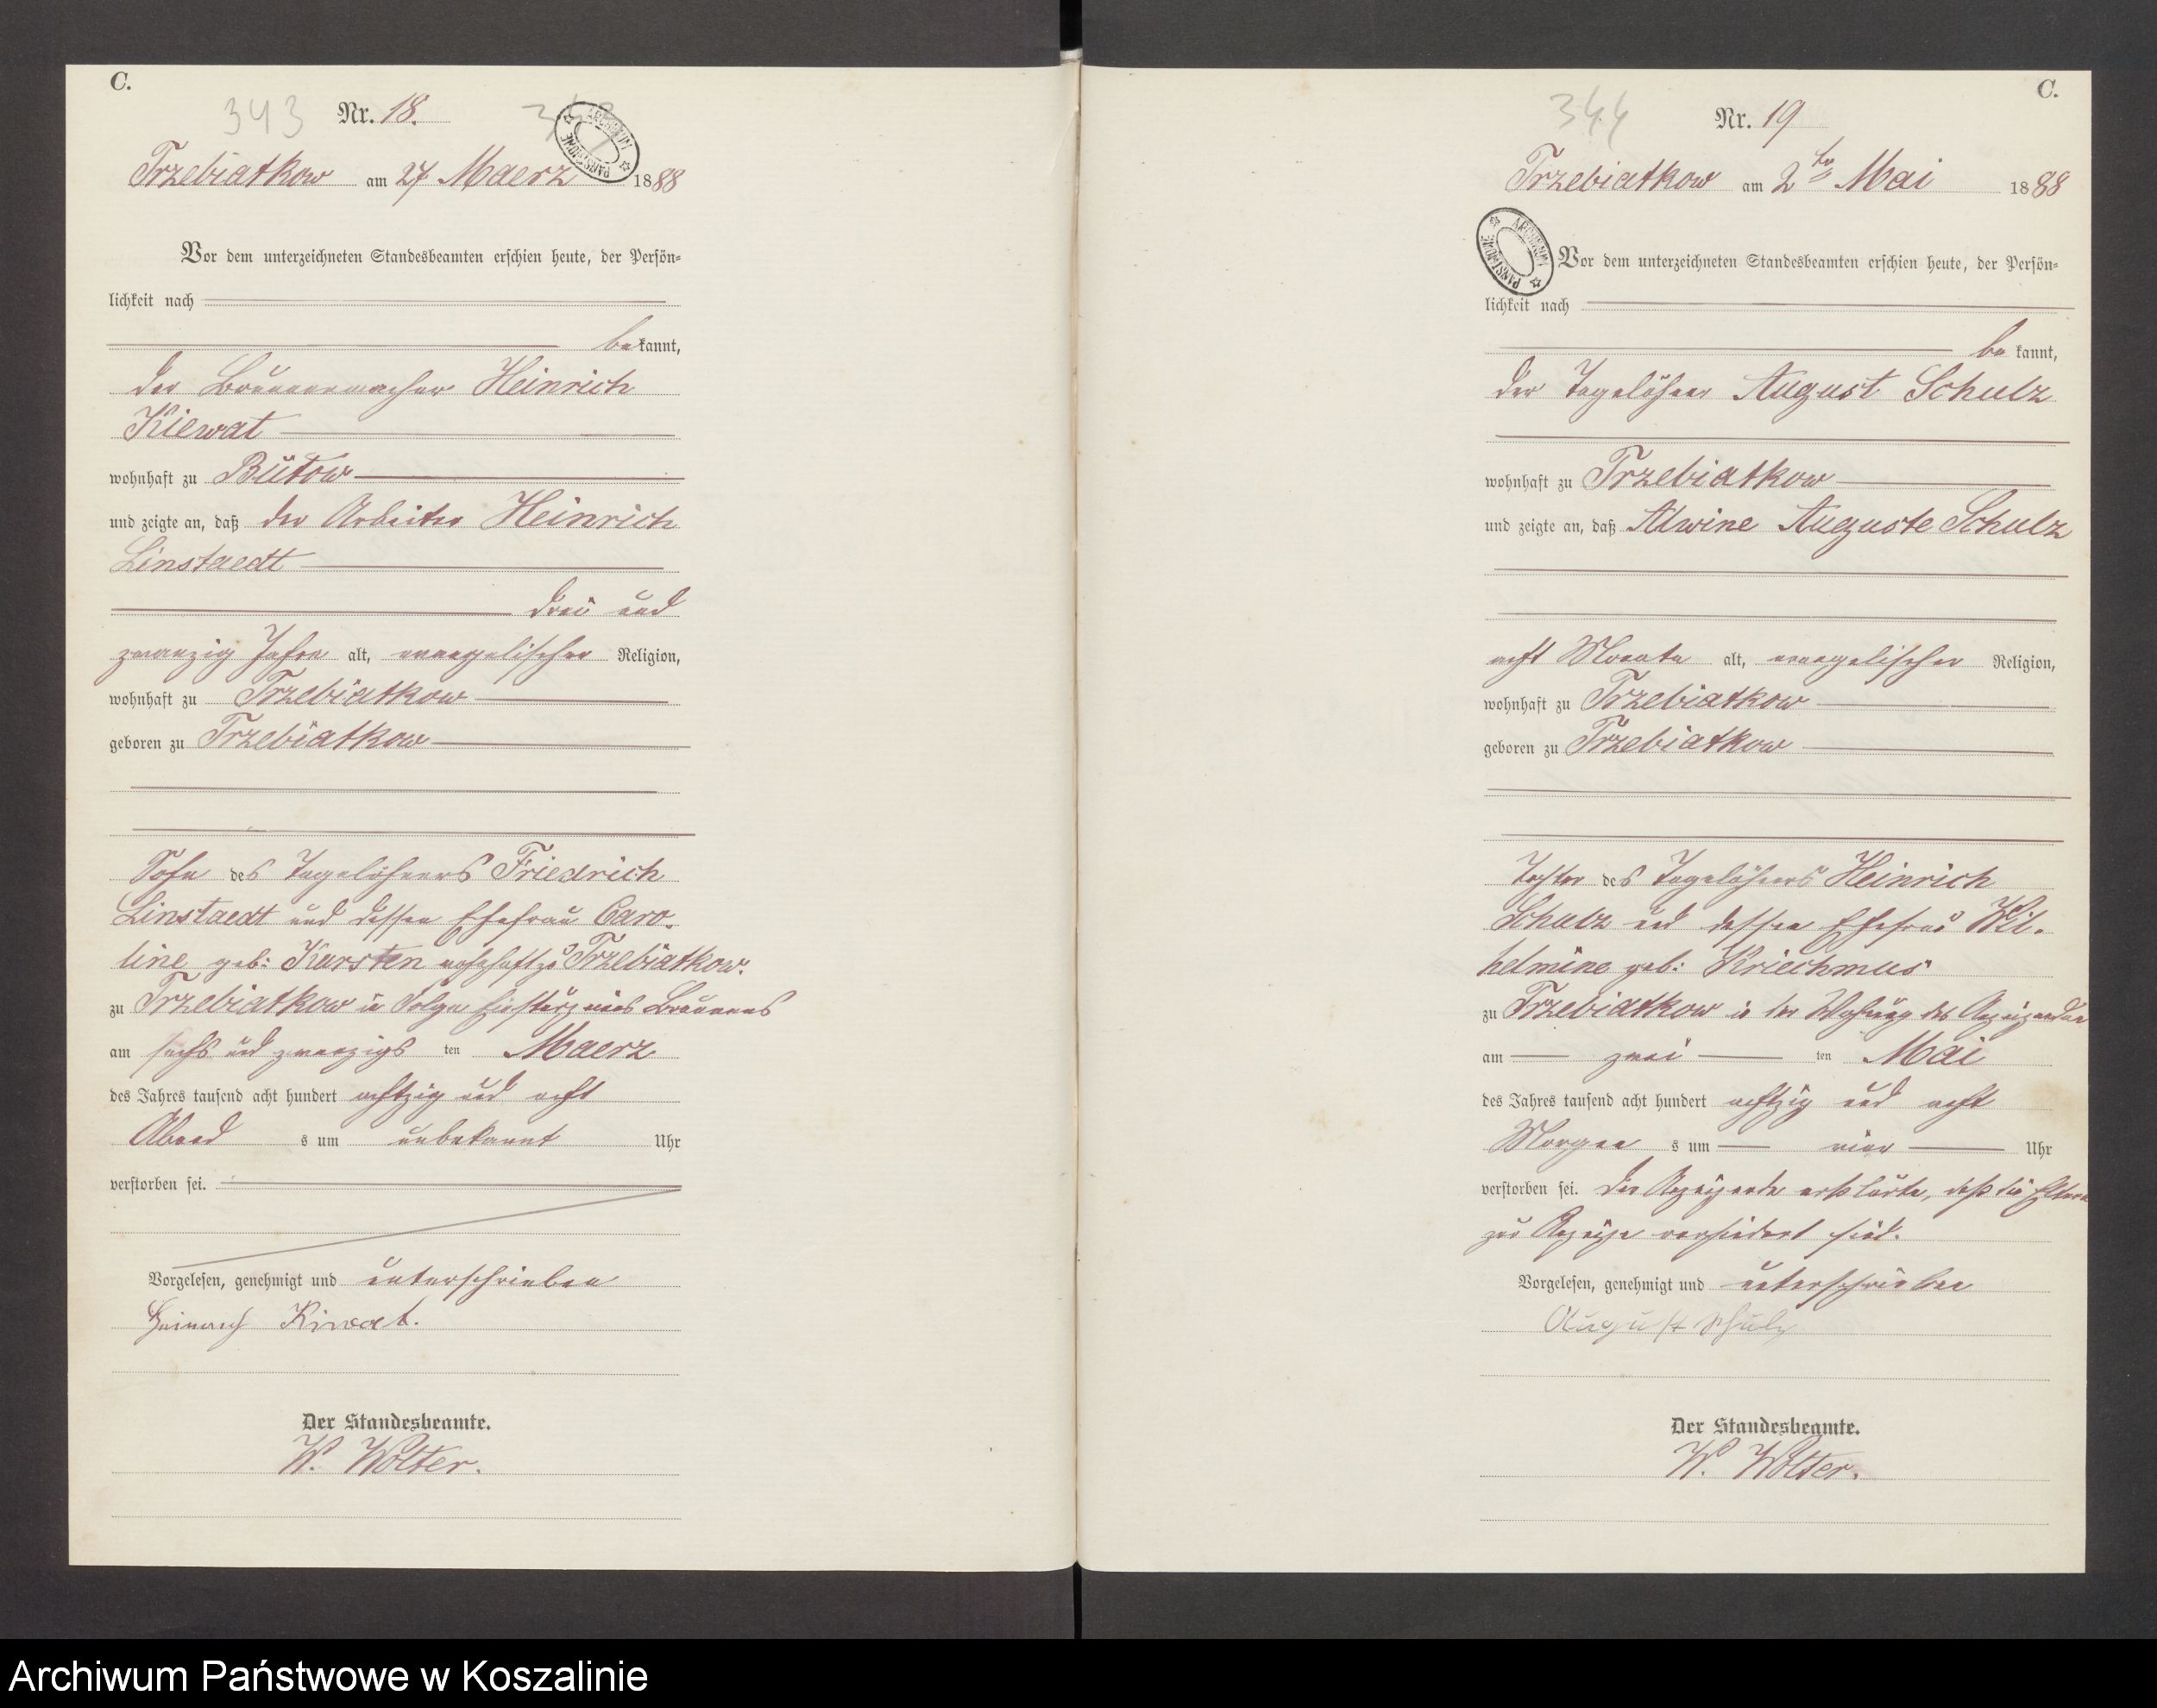 C.
343 Nr. 18.
ARCHIWUM PAŃSTWOWE
Trzebiatkow am 27 Maerz 1888
Vor dem unterzeichneten Standesbeamten erschien heute, der Persön-
lichkeit nach
bekannt,
der Brunnenmacher Heinrich
Kiewat
wohnhaft zu Bütow
und zeigte an, daß der Arbeiter Heinrich
Linstaedt
drei und
zwanzig Jahre alt, evangelischer Religion,
wohnhaft zu Trzebiatkow
geboren zu Trzebiatkow
Sohn des Tagelöhners Friedrich
Linstaedt und dessen Ehefrau Caro-
line geb: Karsten wohnhaft zu Trzebiatkow.
zu Trzebiatkow in Folge Einsturz eines Brunnens
am sechs und zwanzigsten Maerz
des Jahres tausend acht hundert achtzig und acht
Abends um unbekannt Uhr
verstorben sei.
Vorgelesen, genehmigt und unterschrieben
Heinrich Kiwat.
Der Standesbeamte.
W. Wolter.
C.
344 Nr. 19
Trzebiatkow am 2ten Mai 1888
ARCHIWUM PAŃSTWOWE
Vor dem unterzeichneten Standesbeamten erschien heute, der Persön-
lichkeit nach
bekannt,
der Tagelöhner August Schulz
wohnhaft zu Trzebiatkow
und zeigte an, daß Alwine Auguste Schulz
acht Monate alt, evangelischer Religion,
wohnhaft zu Trzebiatkow
geboren zu Trzebiatkow
Tochter des Tagelöhners Heinrich
Schulz und dessen Ehefrau Wil-
helmine geb: Kriechmus
zu Trzebiatkow in der Wohnung des Anzeigenden
am zweiten Mai
des Jahres tausend acht hundert achtzig und acht
Morgens um vier Uhr
verstorben sei. Der Anzeigende erklärte, daß die Eltern
zur Anzeige verhindert sind.
Vorgelesen, genehmigt und unterschrieben
August Schulz
Der Standesbeamte.
W. Wolter.
Archiwum Państwowe w Koszalinie